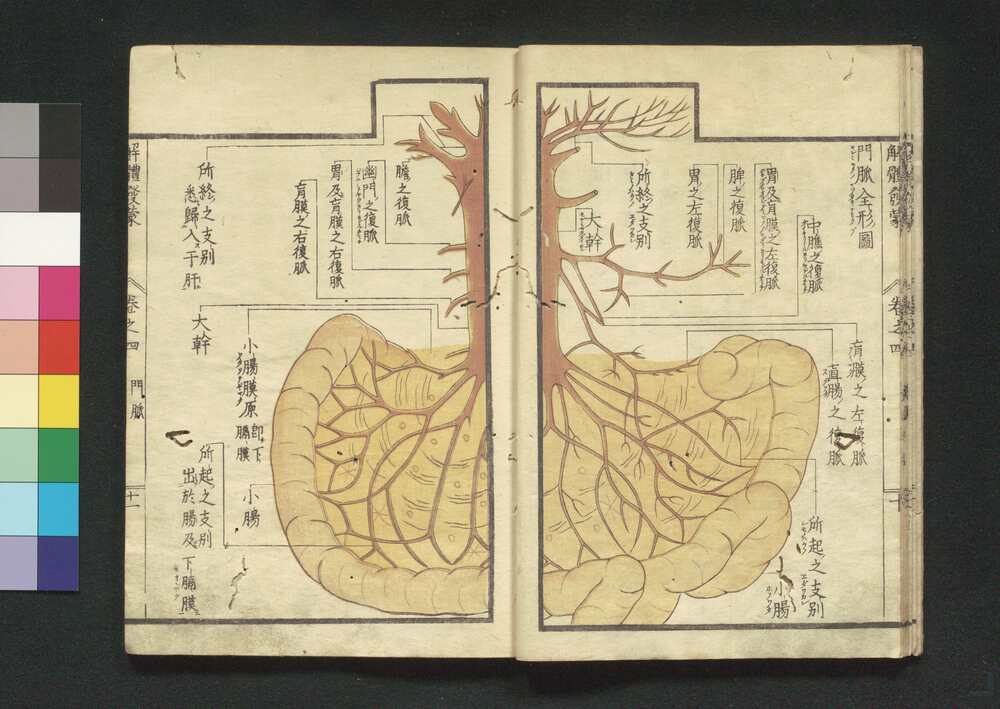 解體發蒙
卷之四
門脈全形圖
中膲之復脈
胃及肓膜之左復脈
脾之復脈
胃之左復脈
所終之支別
大幹
肓膜之左復脈
直腸之復脈
所起之支別
小腸
膽之復脈
幽門之復脈
胃及肓膜之右復脈
肓膜之右復脈
所終之支別
悉歸入于肝
大幹
小腸膜原
即下膈膜
小腸
所起之支別
出於腸及下膈膜
解體發蒙
卷之四
門脈
十一